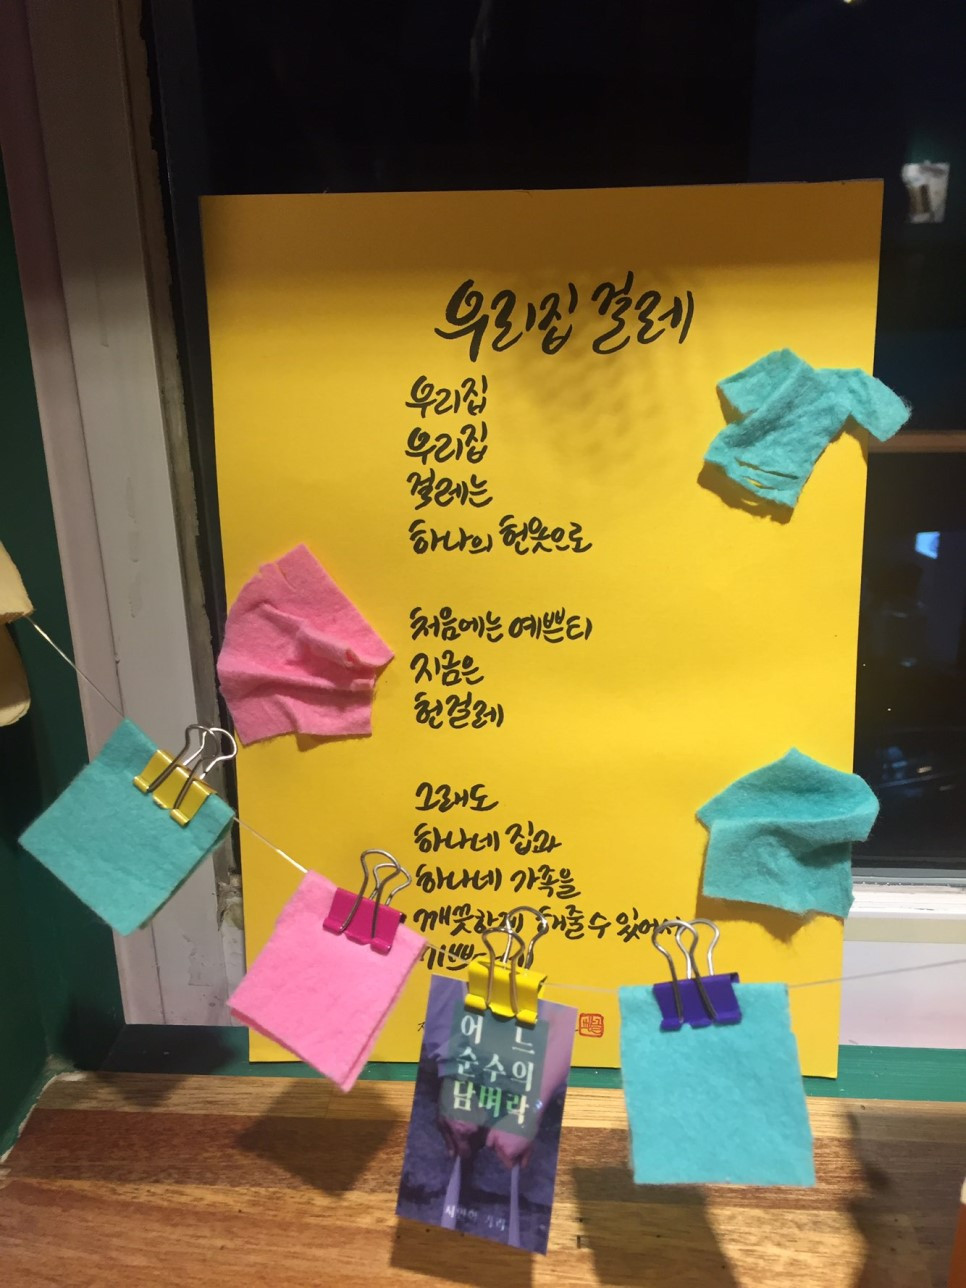 우리집 걸레
우리집
우리집
걸레는
하나의 헌옷으로
처음에는 예쁜티
지금은
헌걸레
그래도
하나네 집과
하나네 가족을
깨끗하게 해줄수 있어서
어느
순수의
담벼락